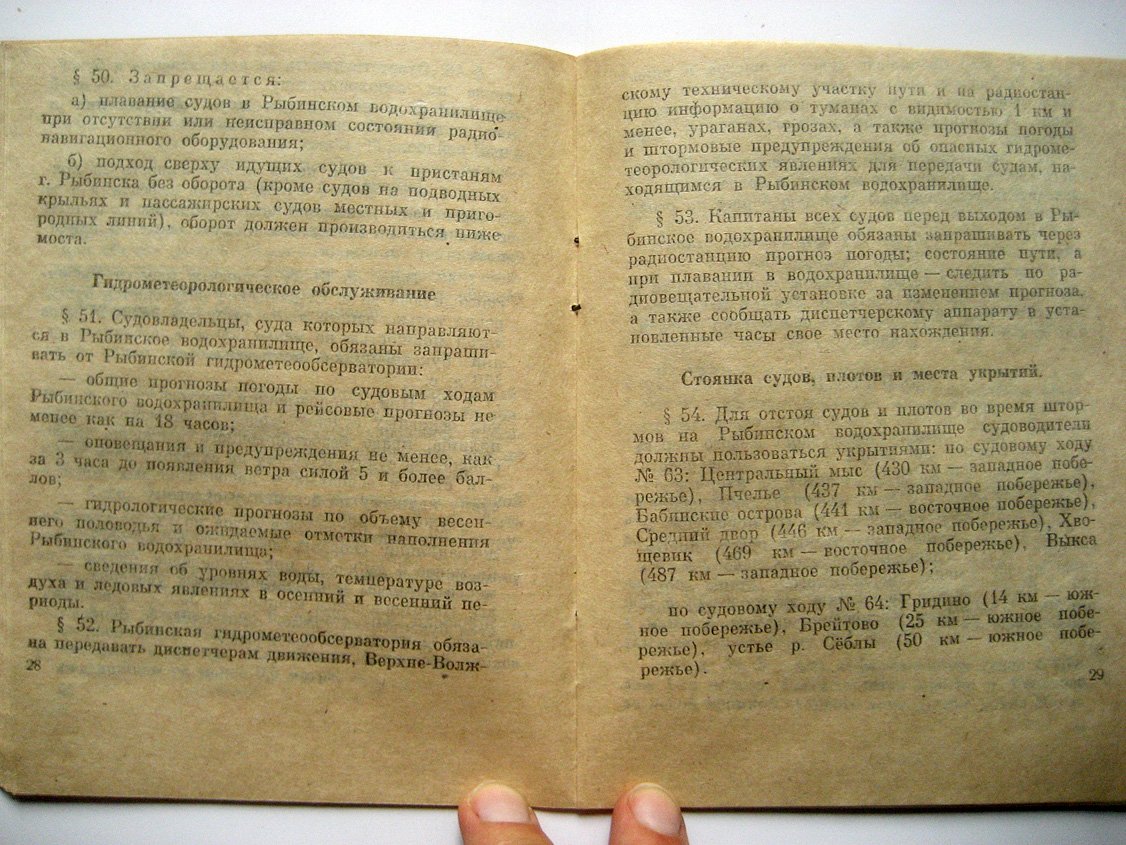 § 50. Запрещается:
а) плавание судов в Рыбинском водохранилище
при отсутствии или неисправном состоянии радио-
навигационного оборудования;
б) подход сверху идущих судов к пристаням
г. Рыбинска без оборота (кроме судов на подводных
крыльях и пассажирских судов местных и приго-
родных линий), оборот должен производиться ниже
моста.
Гидрометеорологическое обслуживание
§ 51. Судовладельцы, суда которых направляют-
ся в Рыбинское водохранилище, обязаны запраши-
вать от Рыбинской гидрометеообсерватории:
— общие прогнозы погоды по судовым ходам
Рыбинского водохранилища и рейсовые прогнозы не
менее как на 18 часов;
— оповещания и предупреждения не менее, как
за 3 часа до появления ветра силой 5 и более бал-
лов;
— гидрологические прогнозы по объему весен-
него половодья и ожидаемые отметки наполнения
Рыбинского водохранилища;
— сведения об уровнях воды, температуре воз-
духа и ледовых явлениях в осенний и весенний пе-
риоды.
§ 52. Рыбинская гидрометеообсерватория обяза-
на передавать диспетчерам движения, Верхне-Волж-
28
скому техническому участку пути и на радиостан-
цию информацию о туманах с видимостью 1 км и
менее, ураганах, грозах, а также прогнозы погоды
и штормовые предупреждения об опасных гидроме-
теорологических явлениях для передачи судам, на-
ходящимся в Рыбинском водохранилище.
§ 53. Капитаны всех судов перед выходом в Ры-
бинское водохранилище обязаны запрашивать через
радиостанцию прогноз погоды; состояние пути, а
при плавании в водохранилище — следить по ра-
диовещательной установке за изменением прогноза,
а также сообщать диспетчерскому аппарату в уста-
новленные часы свое место нахождения.
Стоянка судов, плотов и места укрытий.
§ 54. Для отстоя судов и плотов во время штор-
мов на Рыбинском водохранилище судоводители
должны пользоваться укрытиями: по судовому ходу
№ 63: Центральный мыс (430 км — западное побе-
режье), Пчелье (437 км — западное побережье),
Бабинские острова (441 км — восточное побережье),
Средний двор (446 км — западное побережье), Хво-
щевик (469 км — восточное побережье), Выкса
(487 км — западное побережье);
по судовому ходу № 64: Гридино (14 км — юж-
ное побережье), Брейтово (25 км — южное побе-
режье), устье р. Сёблы (50 км — южное побе-
режье).
29